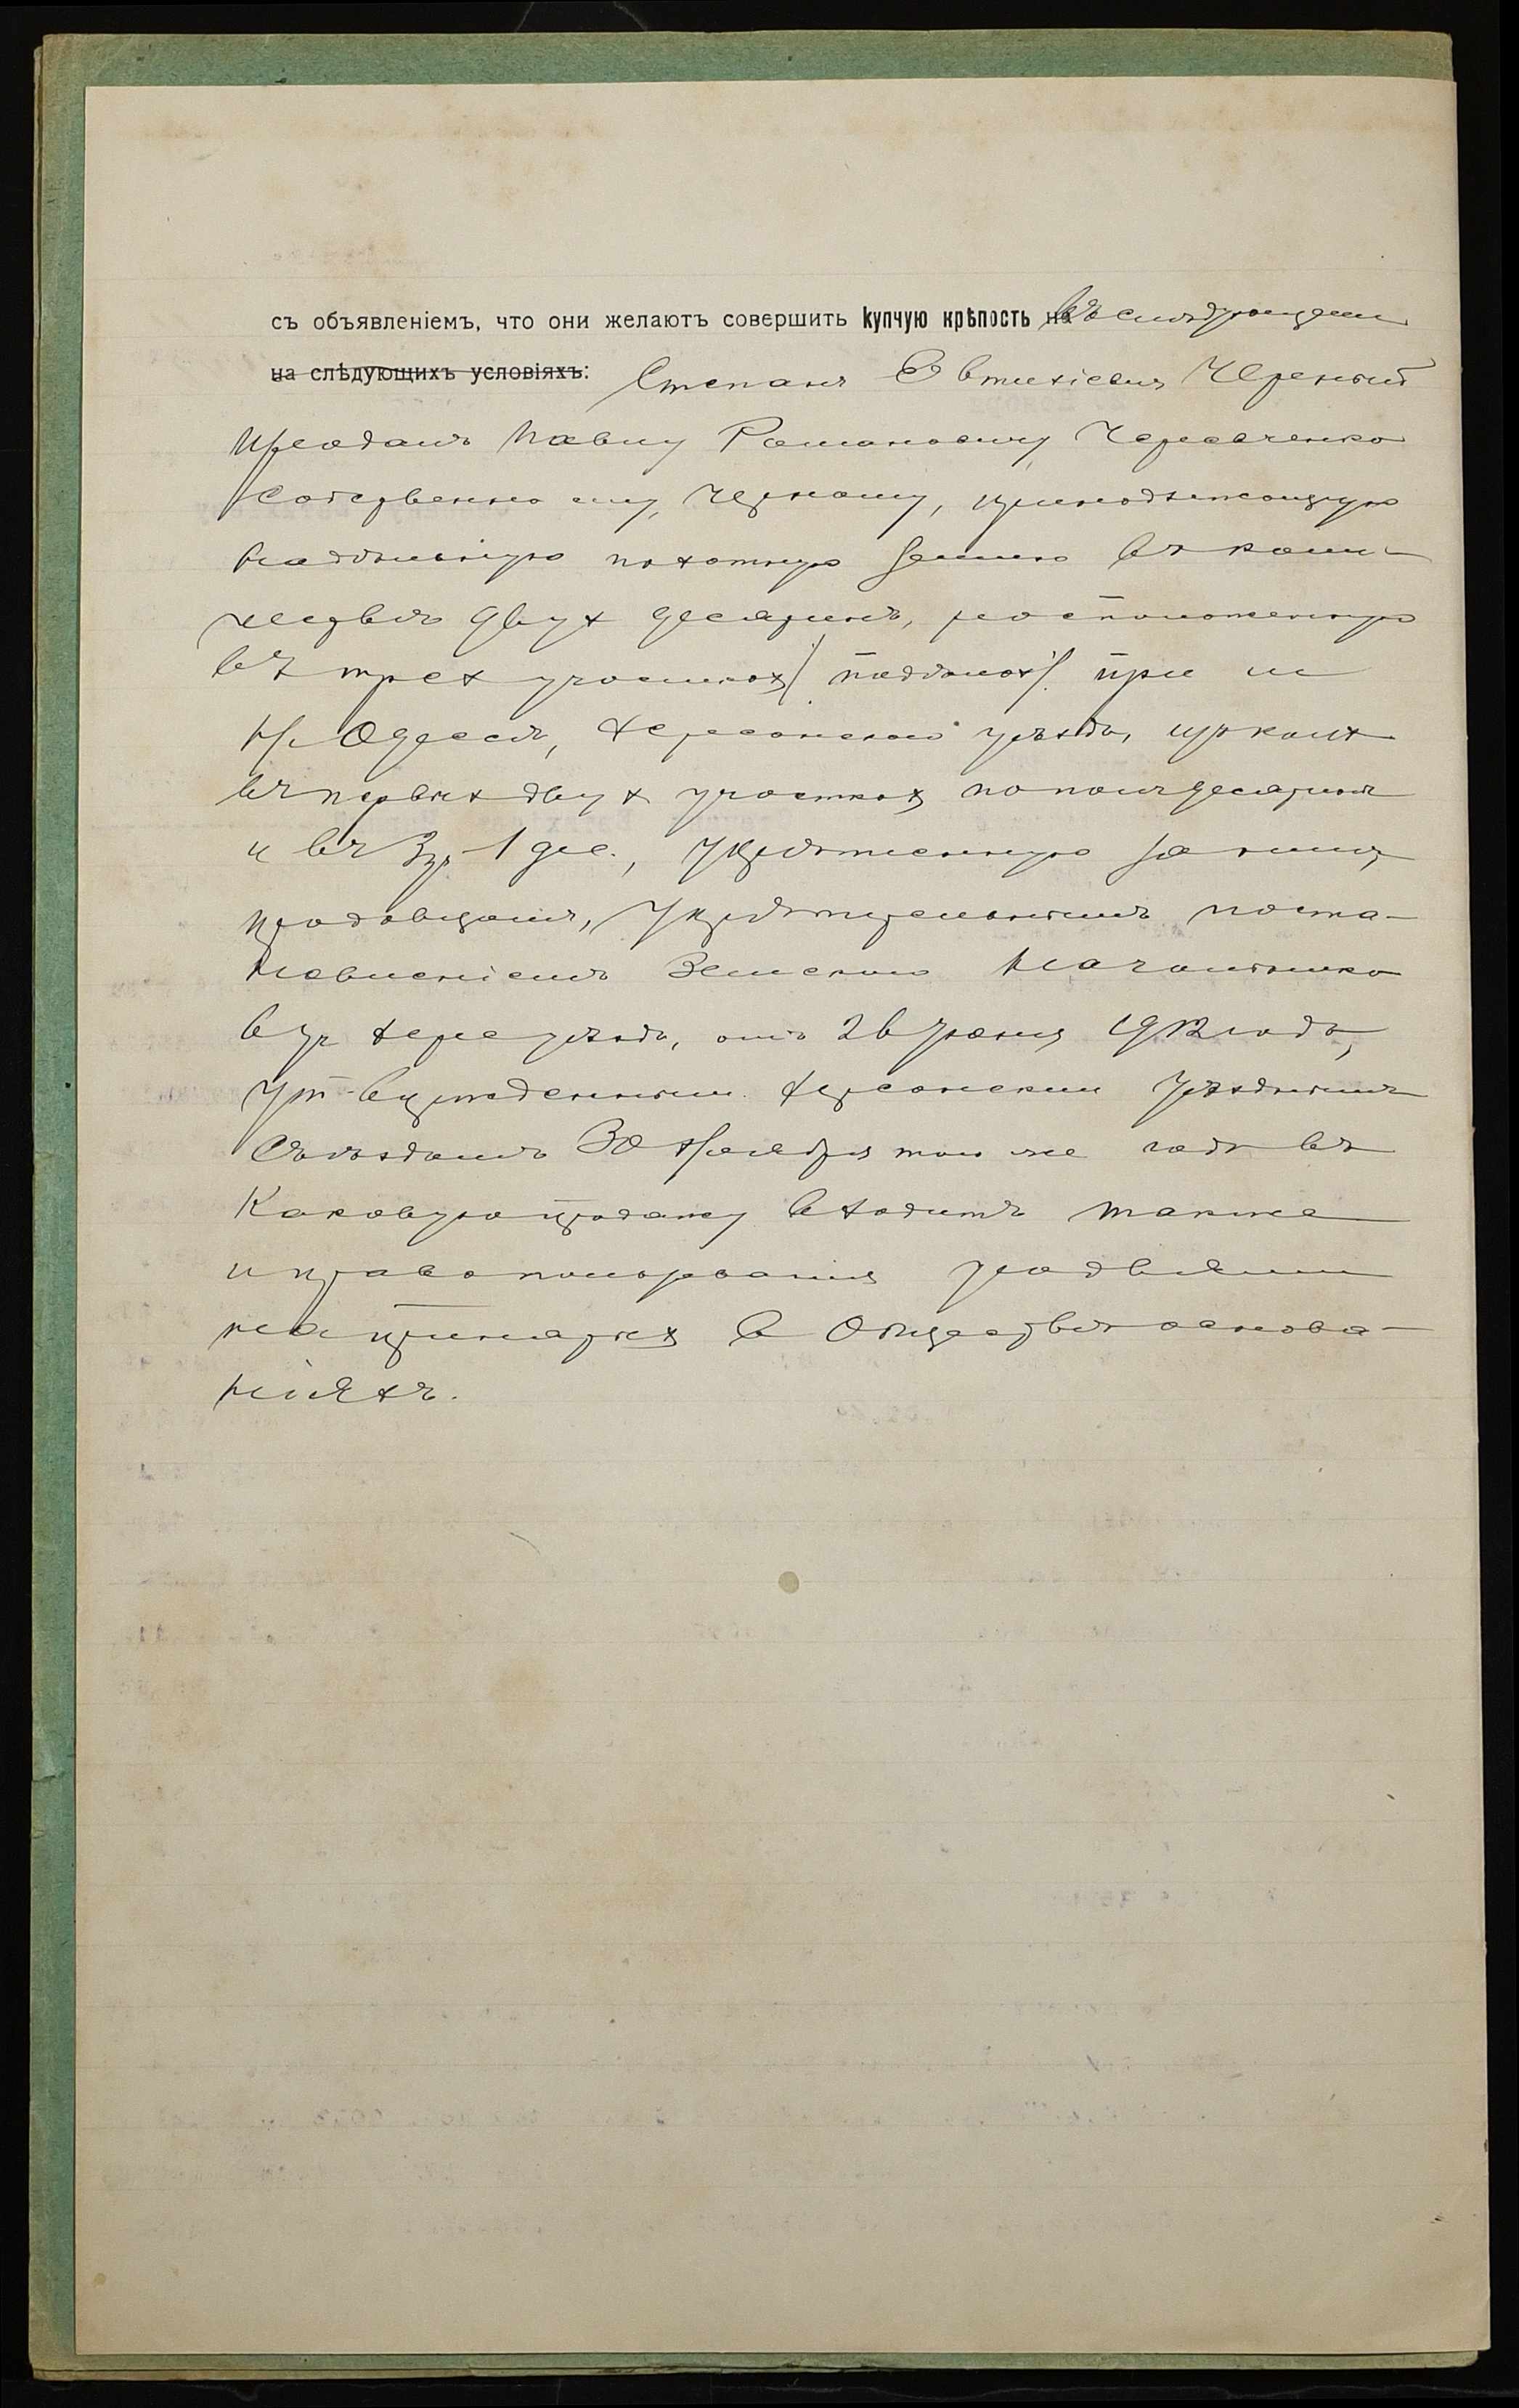 съ объявленіемъ, что они желаютъ совершить купчую крѣпость на въ слѣдующем
на слѣдующихъ условіяхъ: Степанъ Евтихіевичъ Черный
продалъ Павлу Романовичу
собственно ему, Черному, принадлежащую
надѣльную пахотную землю въ коли-
чествѣ двух десятинъ, расположенную
въ трех участках при
Н. Одессѣ, Херсонскаго уѣзда,
въ первых двух участках по полъ десятинѣ
и въ 3 – 1 дес., укрѣпленную за ним,
продавцомъ, укрѣпительнымъ поста-
новленіемъ Земскаго Начальника
уч. Херс уѣзда, отъ 26 1912 года,
утвержденным Херсонским Уѣзднымъ
Съѣздомъ 30 Ноября того же года въ
каковую продажу входитъ также
и право пользованія
на принятых в Обществѣ основа-
ніяхъ.